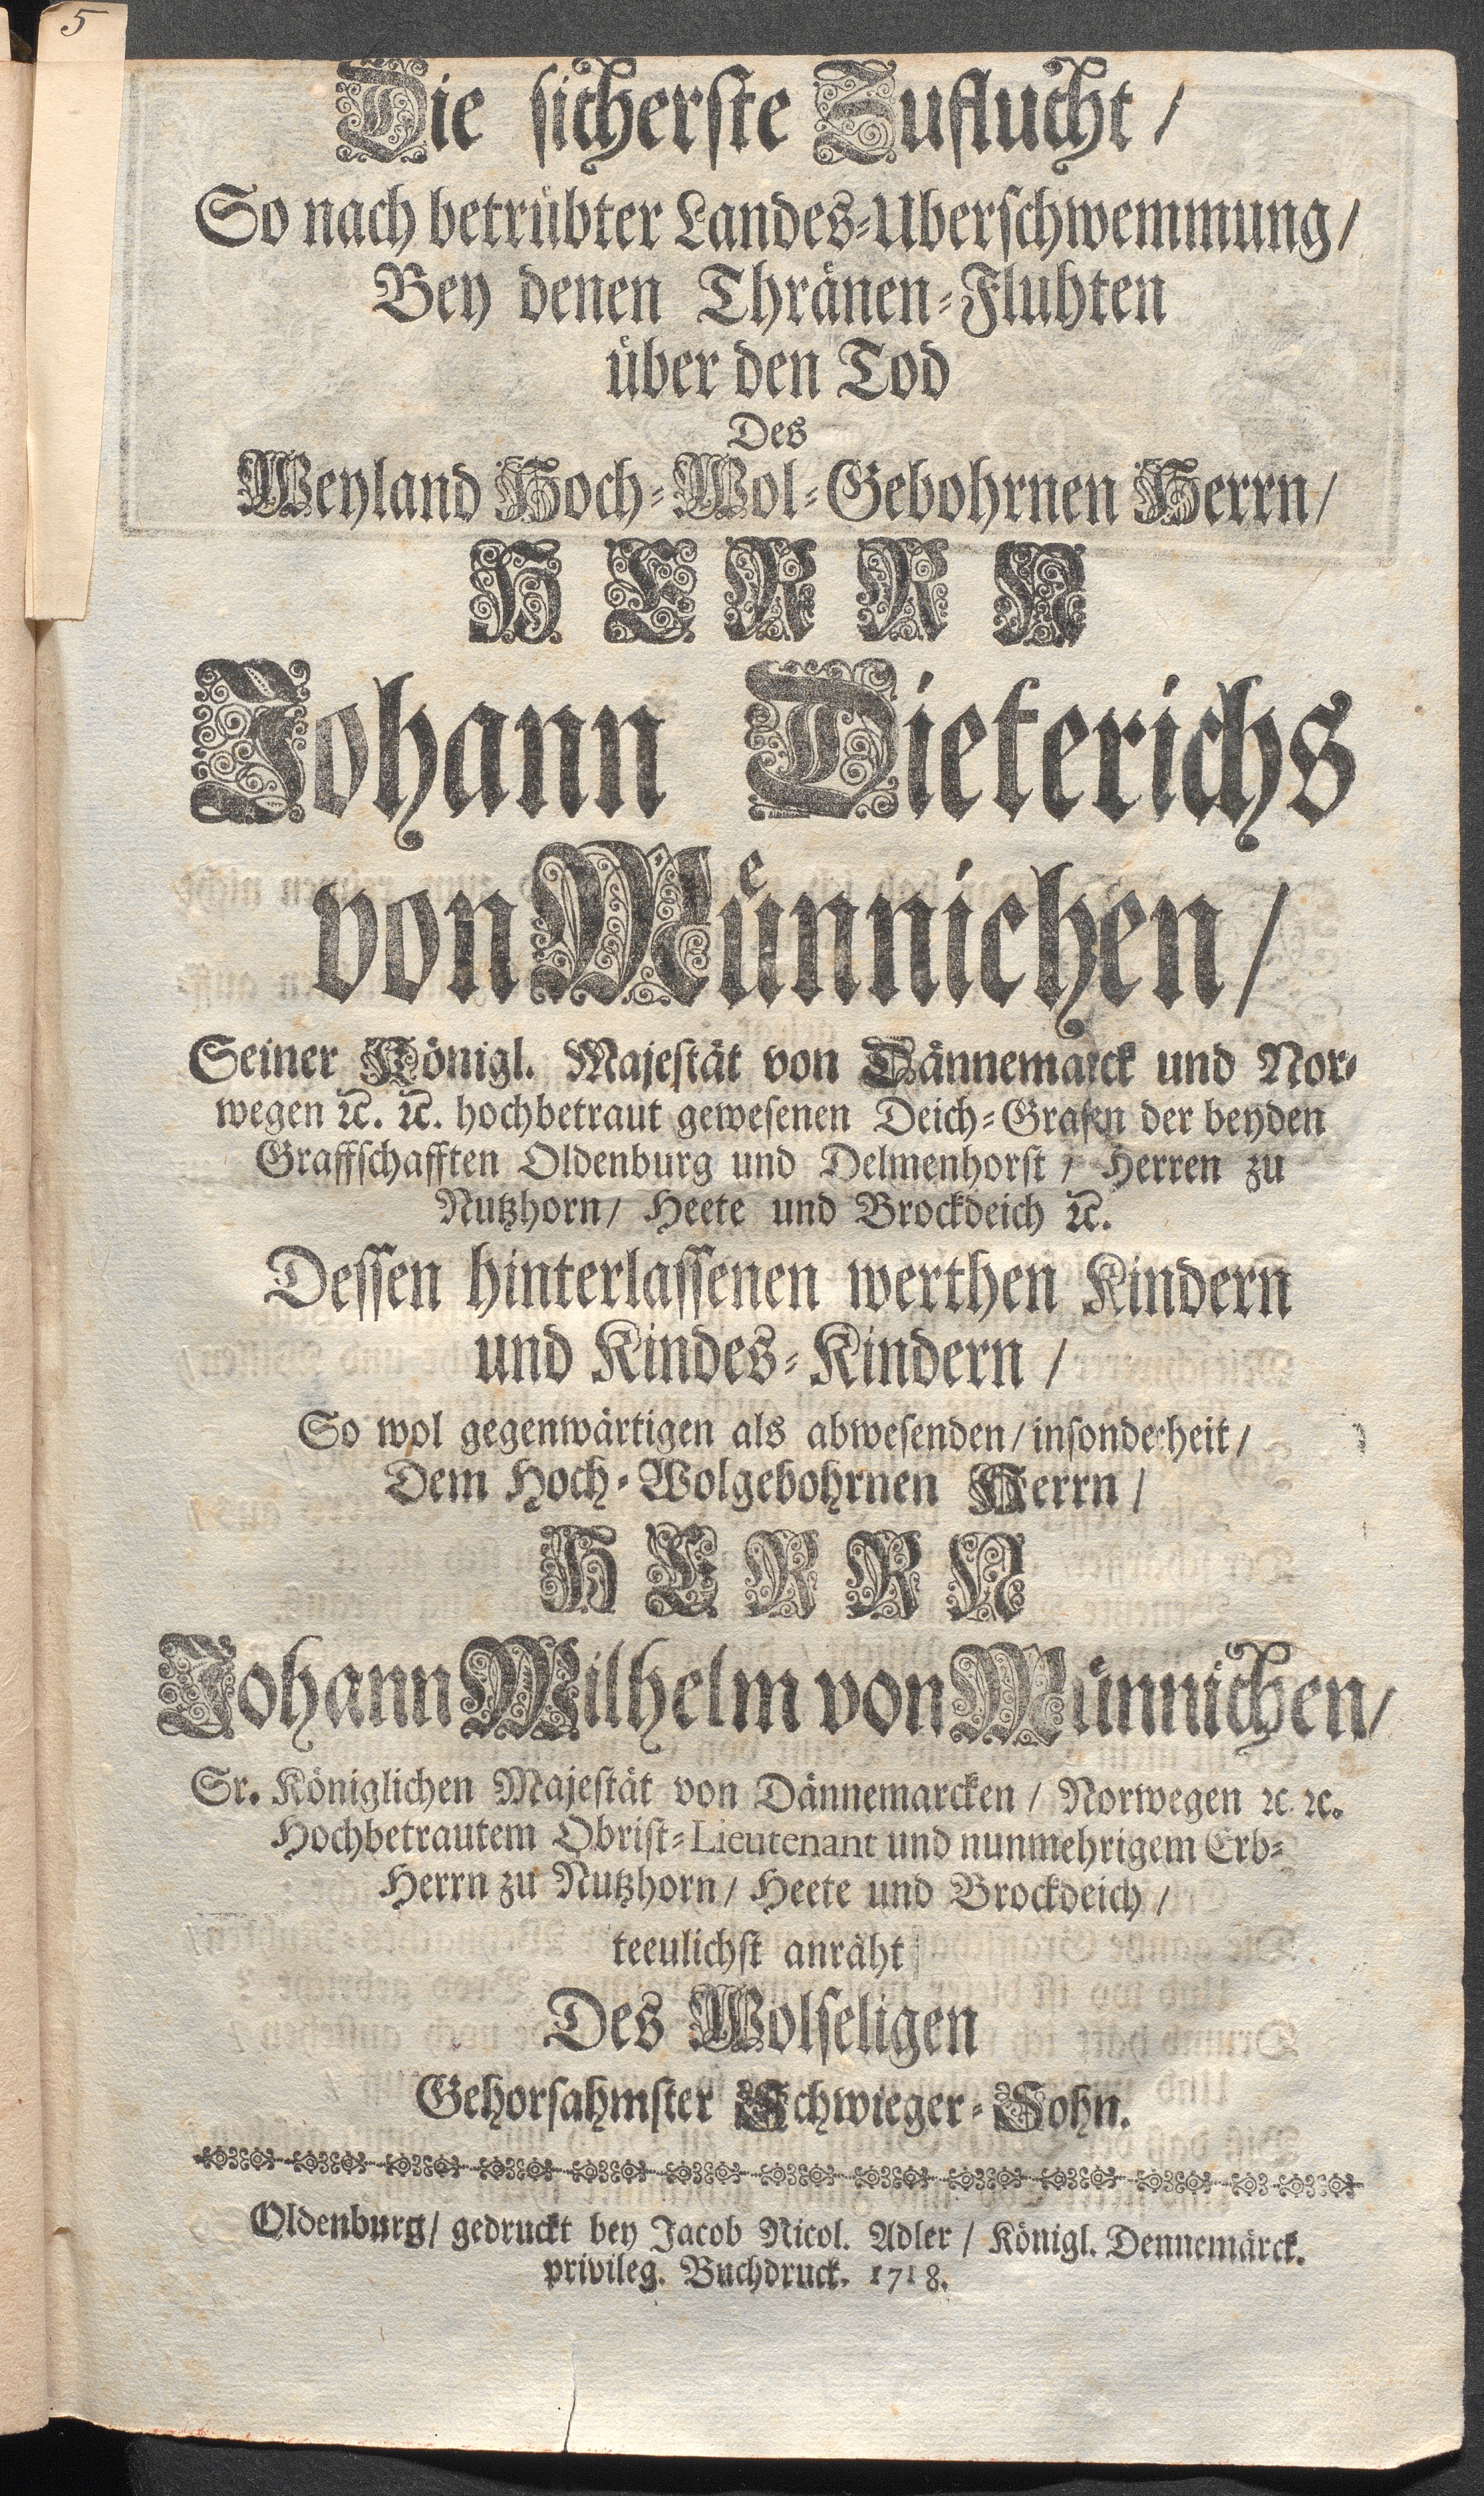 5
Die sicherste Zuflucht /
So nach betrübter Landes-Uberschwemmung /
Bey denen Thränen-Fluhten
über den Tod
Des
Weyland Hoch-Wol-Gebohrnen Herrn /
HERRN
Johann Dieterichs
von Münnichen /
Seiner Königl. Majestät von Dännemarck und Nor-
wegen ꝛc. ꝛc. hochbetraut gewesenen Deich-Grafen der beyden
Graffschafften Oldenburg und Delmenhorst / Herren zu
Nutzhorn / Heete und Brockdeich ꝛc.
Dessen hinterlassenen werthen Kindern
und Kindes-Kindern /
So wol gegenwärtigen als abwesenden / insonderheit /
Dem Hoch-Wolgebohrnen Herrn /
HERRN
Johann Wilhelm von Münnichen /
Sr. Königlichen Majestät von Dännemarcken / Norwegen ꝛc. ꝛc.
Hochbetrautem Obrist-Lieutenant und nunmehrigem Erb-
Herrn zu Nutzhorn / Heete und Brockdeich /
teeulichst anräht
Des Wolseligen
Gehorsahmster Schwieger-Sohn.
Oldenburg / gedruckt bey Jacob Nicol. Adler / Königl. Dennemärck.
privileg. Buchdruck. 1718.